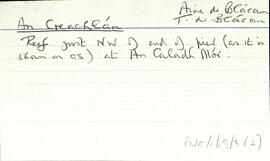 An Creachlán
Áine de Blácam
T. de Blácam
Reef just NW of end of pier (as it is
shown on OS) at An Caladh Mór.